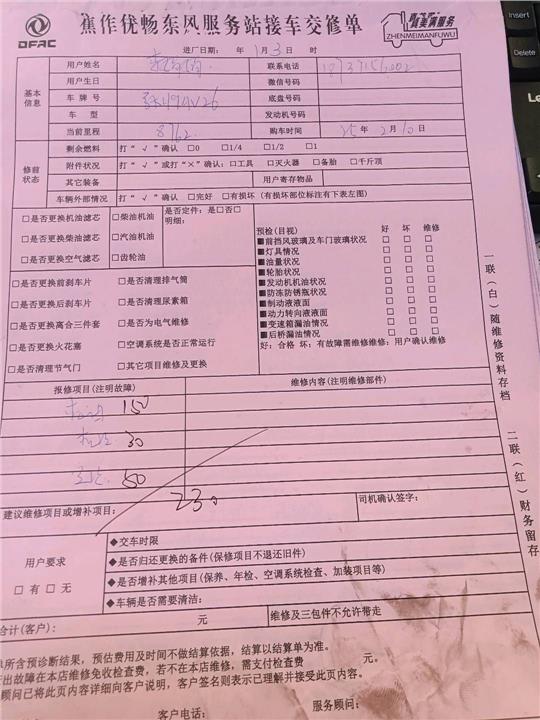 DFAC
焦作优畅东风服务站接车交修单
真美满服务
ZHENMEIMANFUWU
进厂日期： 年 1月 3日 时
基本信息
用户姓名 联系电话
用户生日 微信号码
车牌号 底盘号码
车型 发动机号码
当前里程 8762 购车时间 25年 2月 10日
修前状态
剩余燃料 打“√”确认 □0 □1/4 □1/2 □1
附件状况 打“√”或打“×”确认：□工具 □灭火器 □备胎 □千斤顶
其它装备 用户寄存物品
车辆外部情况 打“√”确认 □完好 □有损坏（有损坏部位标注有下表左图）
□是否更换机油滤芯 □柴油机油 是否定件：是□否□
明细：
□是否更换柴油滤芯 □汽油机油
□是否更换空气滤芯 □齿轮油
□是否更换前刹车片 □是否清理排气筒
□是否更换后刹车片 □是否清理尿素箱
□是否更换离合三件套 □是否为电气维修
□是否更换火花塞 □空调系统是否正常运行
□是否清理节气门 □其它项目维修及更换
预检(目视) 好 坏 维修
■前挡风玻璃及车门玻璃状况 □ □ □
■灯具情况 □ □ □
■油量状况 □ □ □
■轮胎状况 □ □ □
■发动机机油状况 □ □ □
■防冻防锈瓶状况 □ □ □
■制动液液面 □ □ □
■动力转向液液面 □ □ □
■变速箱漏油情况 □ □ □
■后桥漏油情况 □ □ □
好：合格 坏：有故障需维修维修：用户确认维修
报修项目(注明故障) 维修内容(注明维修部件)
150
30
50
230
建议维修项目或增补项目： 司机确认签字：
用户要求
□有 □无
◆交车时限
◆是否归还更换的备件(保修项目不退还旧件)
◆是否增补其他项目(保养、年检、空调系统检查、加装项目等)
◆车辆是否需要清洁：
合计(客户)： 元 维修及三包件不允许带走
单所含预诊断结果，预估费用及时间不做结算依据，结算以结算单为准。
出故障在本店维修免收检查费，若不在本店维修，需支付检查费 元。
顾问已将此页内容详细向客户说明，客户签名则表示已理解并接受此页内容。
客户电话： 服务顾问：
一联（白）随维修资料存档
二联（红）财务留存
Insert
Delete
Le